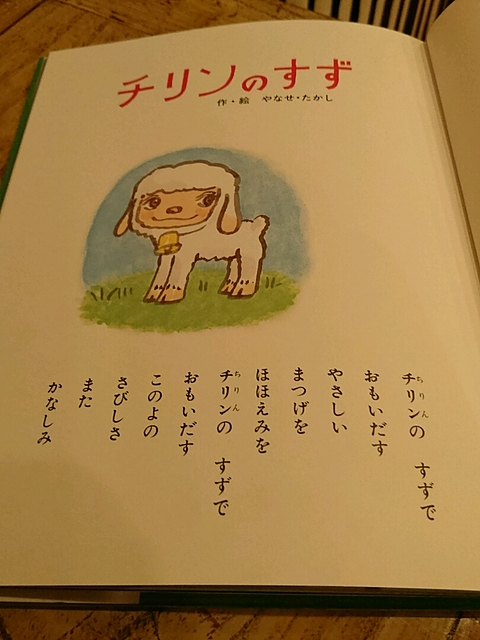 チリンのすず
作・絵 やなせ・たかし
チリンの すずで
おもいだす
やさしい
まつげを
ほほえみを
チリンの すずで
おもいだす
このよの
さびしさ
また
かなしみ